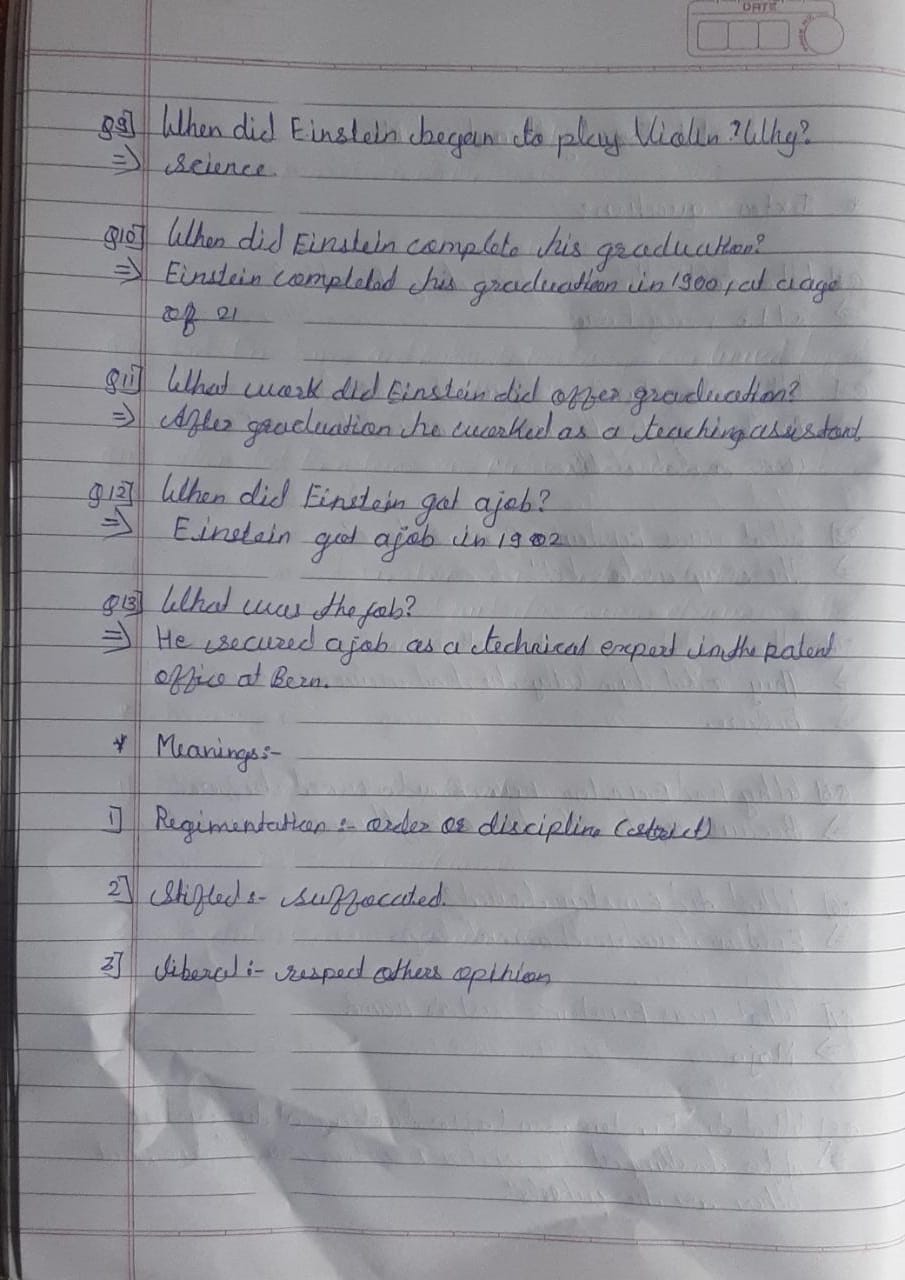 DATE
Q9] When did Einstein began to play Violin? Why?
=> science.
Q10] When did Einstein complete his graduation?
=> Einstein completed his graduation in 1900, at age
of 21
Q11] What work did Einstein did after graduation?
=> After graduation he worked as a teaching assistant
Q12] When did Einstein got a job?
=> Einstein got a job in 1902
Q13] What was the job?
=> He secured a job as a technical expert in the patent
office at Bern.
* Meanings:-
1] Regimentation :- order or discipline (strict)
2] Stifled :- suffocated.
3] liberal :- respect others opinion